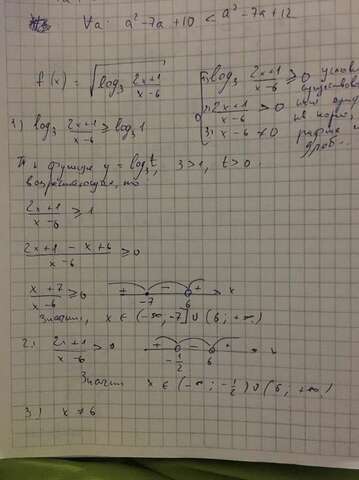 ∀a: a² - 7a + 10 < a² - 7a + 12
f(x) = √(log₃ (2x+1)/(x-6))
1) log₃ (2x+1)/(x-6) ≥ 0 услов
существов
2) (2x+1)/(x-6) > 0
3) x - 6 ≠ 0
1) log₃ (2x+1)/(x-6) ≥ log₃ 1
Т к функция y = log₃ t, 3 > 1, t > 0
возрастающая, то
(2x+1)/(x-6) ≥ 1
(2x+1 - x+6)/(x-6) ≥ 0
(x+7)/(x-6) ≥ 0 + - + -7 6 x
Значит, x ∈ (-∞, -7] ∪ (6; +∞)
2) (2x+1)/(x-6) > 0 + - + -1/2 6 x
Значит x ∈ (-∞; -1/2) ∪ (6; +∞)
3) x ≠ 6